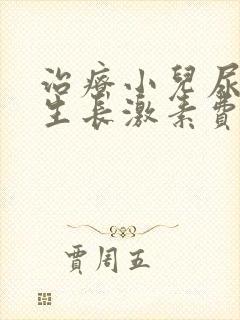 治療小兒尿
生長激素費
賈周五